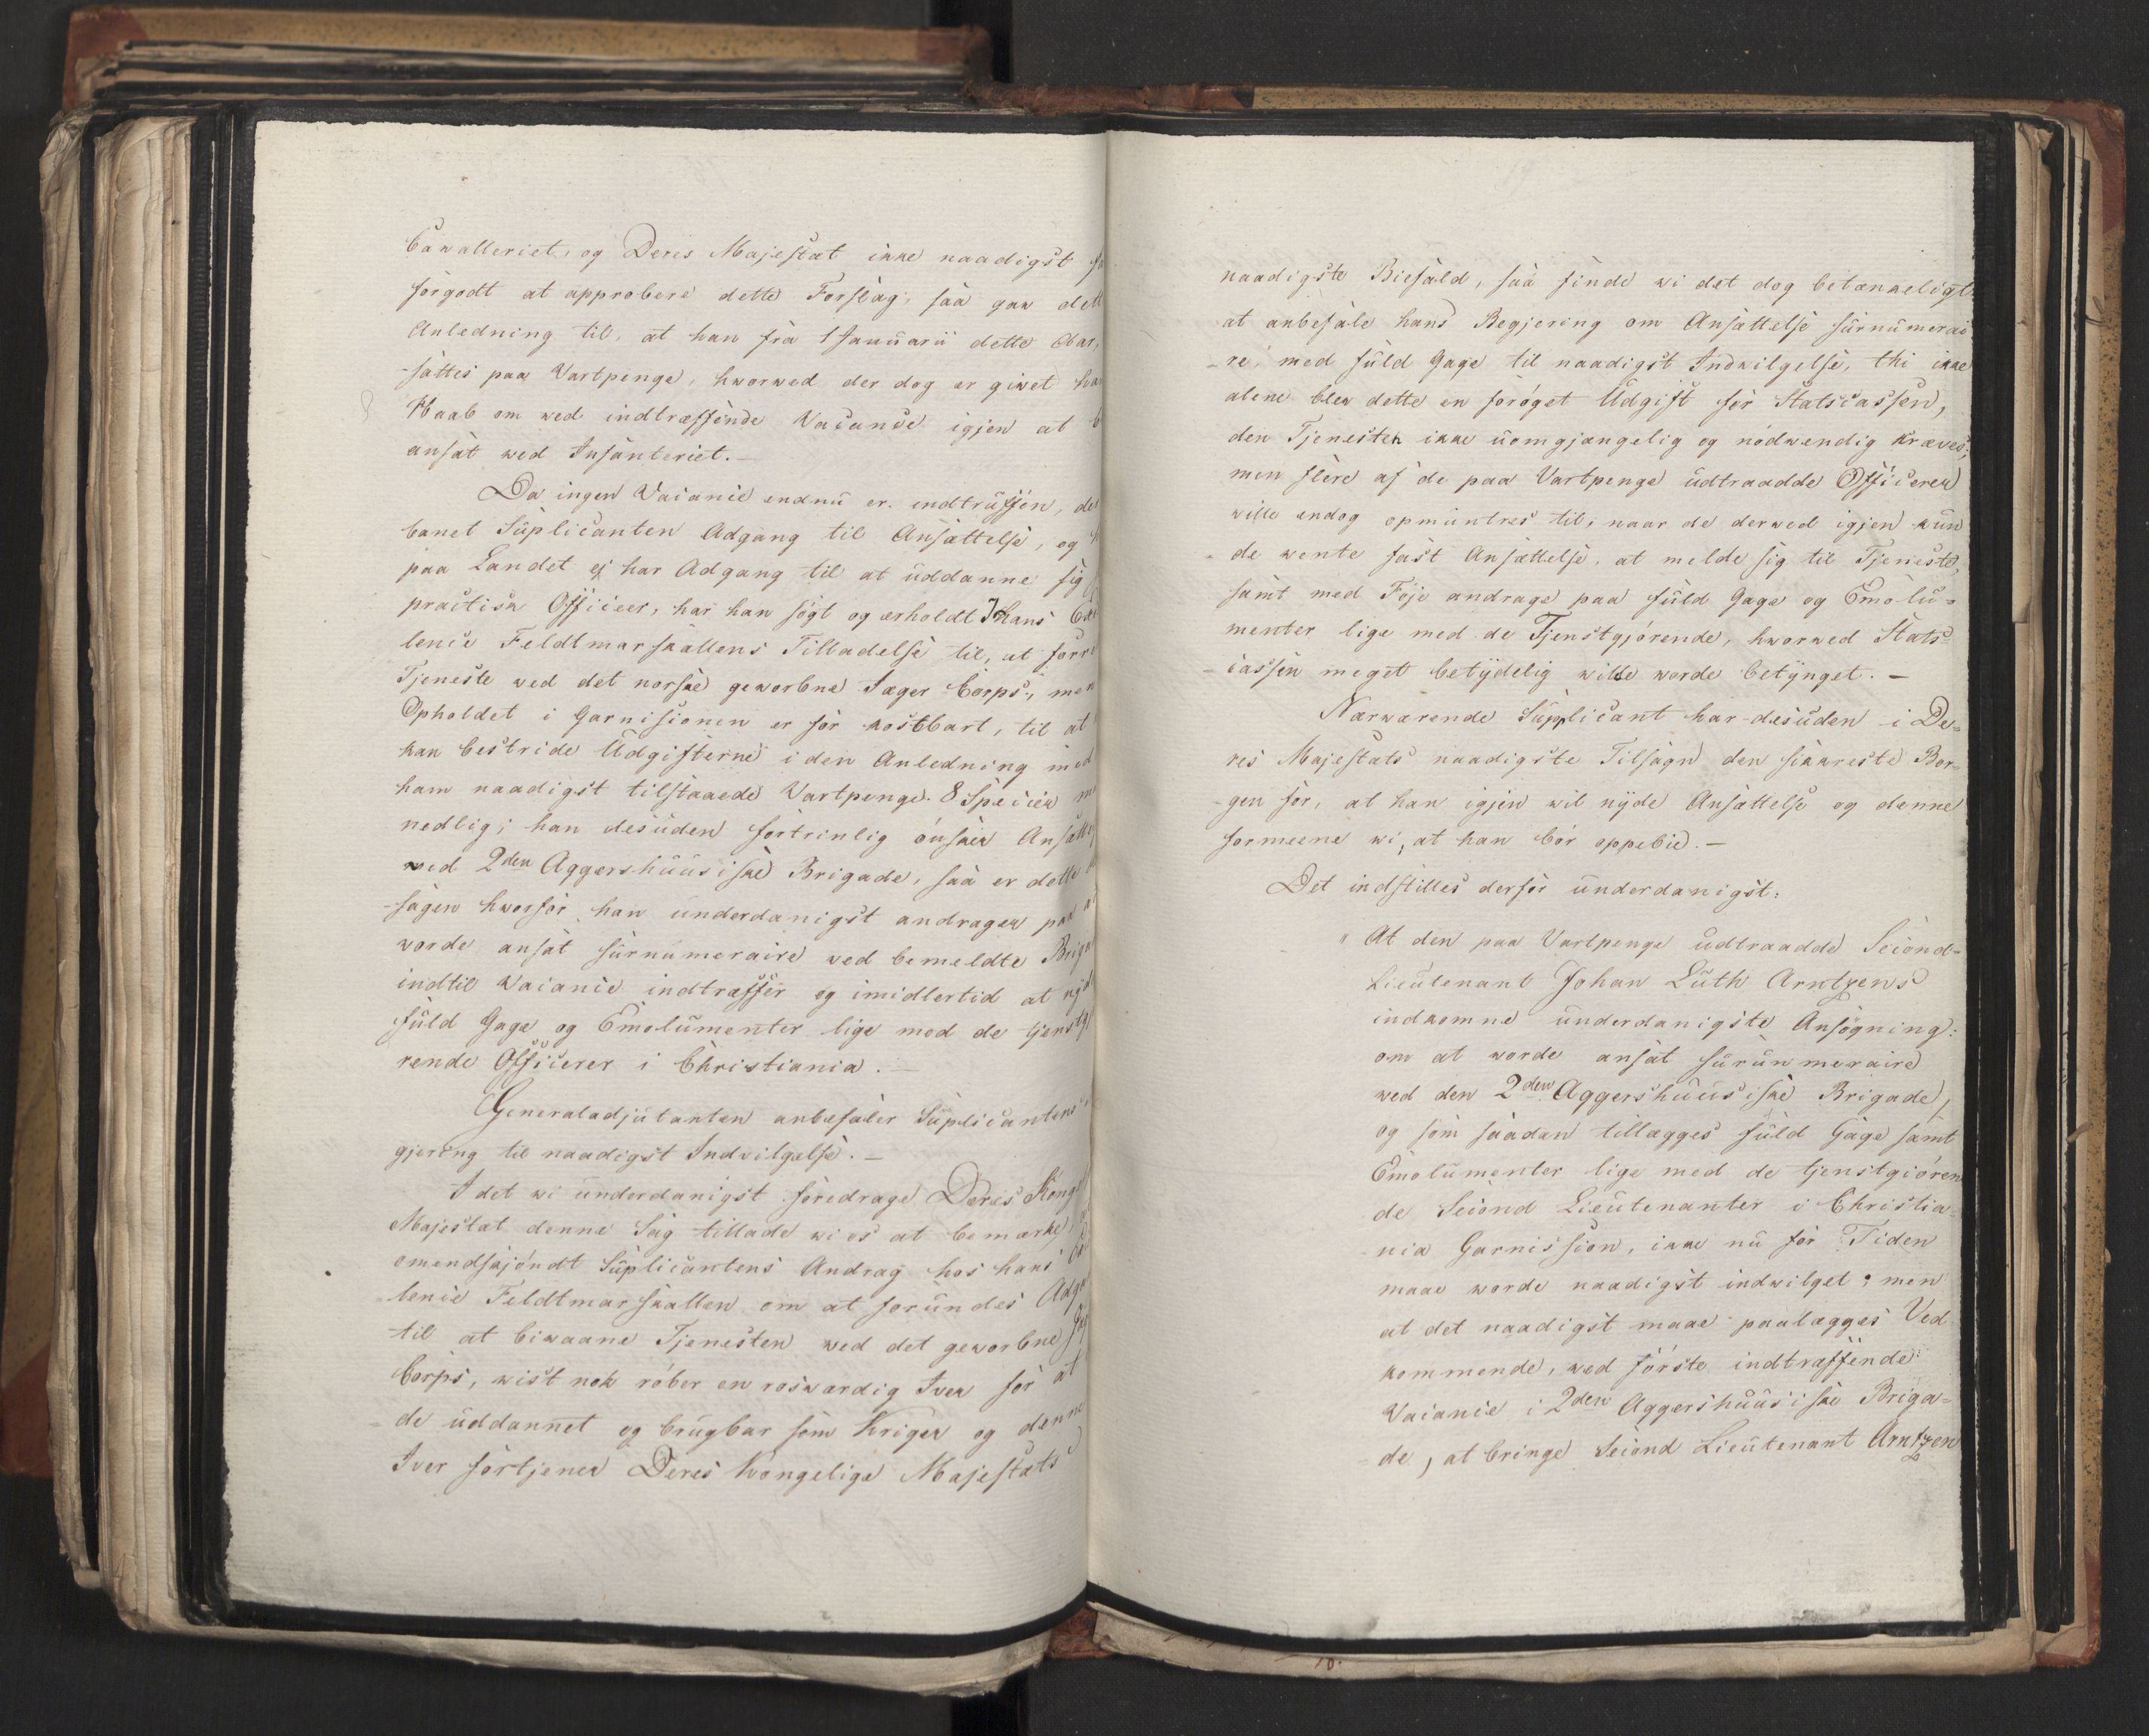 Cavalleriet, og Deres Majestæt ikke naadigst
forgodt at approbere dette Forslag, saa gav
Anledning til, at han fra 1 Januarii dette Aar,
-sattes paa Vartpenge, hvorved der dog er givet
Haab om ved indtræffende Vacance igjen at
ansat ved Infanteriet. —
Da ingen Vacance endnu er indtruffen, der
banet Suplicanten Adgang til Ansættelse, og
paa Landet ej har Adgang til at uddanne sig
practisk Officeer, har han søgt og erholdt Hans
lence Feldtmarskallens Tilladelse til, at
Tjeneste ved det norske gevorbne Jæger Corps; men
Opholdet i Garnisionen er for kostbart, til at
kan bestride Udgifterne i den Anledning med
ham naadigst tilstaaede Vartpenge 8 Specier
nedlig; han desuden fortrinlig ønsker
ved 2den Aggershuusiske Brigade, saa er dette
-sagen hvorfor han underdanigst andrager paa at
vorde ansat surnumeraire ved bemeldte
indtil Vacance indtræffer og imidlertid at
fuld Gage og Emolumenter lige med de
rende Officerer i Christiania. —
Generaladjutanten anbefaler Suplicantens
gjering til naadigst Indvilgelse. —
I det vi underdanigst foredrage Deres
Majestæt denne Sag tillade vi os at bemærke,
omendskjøndt Suplicantens Andrag hos hans
lence Feldtmarskallen om at forundes
til at bivaane Tjenesten ved det gevorbne
Corps, vist nok røber en rosværdig Iver for at
-de uddannet og brugbar som Kriger og denne
Iver fortjener Deres Kongelige Majestæts
naadigste Biefald, saa finde vi det dog betænkeligt
at anbefale hans Begjering om Ansættelse surnumerai
-re med fuld Gage til naadigst Indvilgelse, thi ikke
alene blev dette en forøget Udgift for Statscassen,
den Tjenesten ikke uomgjængelig og nødvendig kræves;
men flere af de paa Vartpenge udtraadde Officerer
ville endog opmuntres til, naar de derved igjen kun
-de vente fast Ansættelse, at melde sig til Tjeneste,
samt med Føje andrage paa fuld Gage og Emolu-
menter lige med de Tjenstgjørende, hvorved Stats-
-cassen meget betydelig ville vorde betynget. —
Nærværende Supplicant har desuden i De-
res Majestæts naadigste Tilsagn den sikkreste Bor-
-gen for, at han igjen vil nyde Ansættelse og denne
formeene vi, at han bør oppebie. —
Det indstilles derfor underdanigst:
" At den paa Vartpenge udtraadde Second-
Lieutenant Johan Luth Arntzens
indkomne underdanigste Ansøgning:
om at vorde ansat surunmeraire
ved den 2den Aggershuusiske Brigade,
og som saadan tillægges fuld Gage samt
Emolumenter lige med de tjenstgiøren
de Second Lieutenanter i Christia-
nia Garnission, ikke nu for Tiden
maae vorde naadigst indvilget; men
at det naadigst maae paalægges Ved
kommende, ved første indtræffende
Vacance i 2den Aggershuusiske Briga-
de, at bringe Second Lieutenant Arntzen